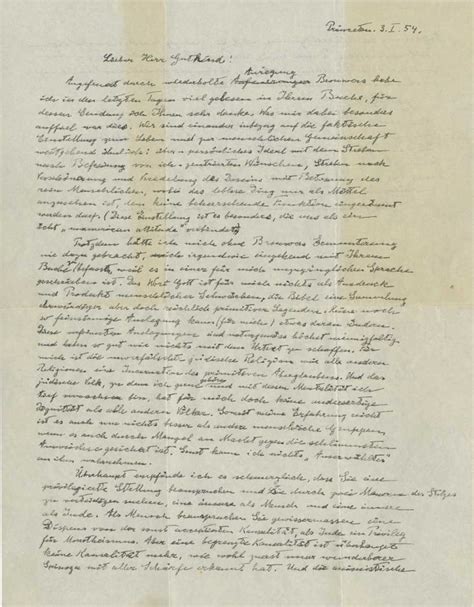 Princeton. 3. I. 54.
Lieber Herr Gutkind!
Angefeuert durch wiederholte Anregung Brouwers habe
ich in den letzten Tagen viel gelesen in Ihrem Buche, für
dessen Sendung ich Ihnen sehr danke. Was mir dabei besonders
auffiel war dies. Wir sind einander inbezug auf die faktische
Einstellung zum Leben und zur menschlichen Gemeinschaft
weitgehend ähnlich: über-persönliches Ideal mit dem Streben
nach Befreiung von ich-zentrierten Wünschen, Streben nach
Verschönerung und Veredelung des Daseins mit Betonung des
rein Menschlichen, wobei das leblose Ding nur als Mittel
anzusehen ist, dem keine beherrschende Funktion eingeräumt
werden darf. (Diese Einstellung ist es besonders, die uns als ein
echt "unamerican attitude" verbindet)
Trotzdem hätte ich mich ohne Brouwers Ermunterung
nie dazu gebracht, mich irgendwie eingehend mit Ihrem
Buche zu befassen, weil es in einer für mich unzugänglichen Sprache
geschrieben ist. Das Wort Gott ist für mich nichts als Ausdruck
und Produkt menschlicher Schwächen, die Bibel eine Sammlung
ehrwürdiger aber doch reichlich primitiver Legenden. Keine noch
so feinsinnige Auslegung kann (für mich) etwas daran ändern.
Diese verfeinerten Auslegungen sind naturgemäss höchst mannigfaltig
und haben so gut wie nichts mit dem Urtext zu schaffen. Für
mich ist die unverfälschte jüdische Religion wie alle anderen
Religionen eine Incarnation des primitiven Aberglaubens. Und das
jüdische Volk, zu dem ich gern gehöre und mit dessen Mentalität ich
tief verwachsen bin, hat für mich doch keine andersartige
Dignität als alle anderen Völker. Soweit meine Erfahrung reicht
ist es auch um nichts besser als andere menschliche Gruppen,
wenn es auch durch Mangel an Macht gegen die schlimmsten
Auswüchse gesichert ist. Sonst kann ich nichts „Auserwähltes“
an ihm wahrnehmen.
Überhaupt empfinde ich es schmerzlich, dass Sie eine
privilegierte Stellung beanspruchen und sie durch zwei Mauern des Stolzes
zu verteidigen suchen, eine äussere als Mensch und eine innere
als Jude. Als Mensch beanspruchen Sie gewissermassen einen
Dispens von der sonst acceptierten Kausalität, als Jude ein Privileg
für Monotheismus. Aber eine begrenzte Kausalität ist überhaupt
keine Kausalität mehr, wie wohl zuerst unser wunderbarer
Spinoza mit aller Schärfe erkannt hat. Und die animistische